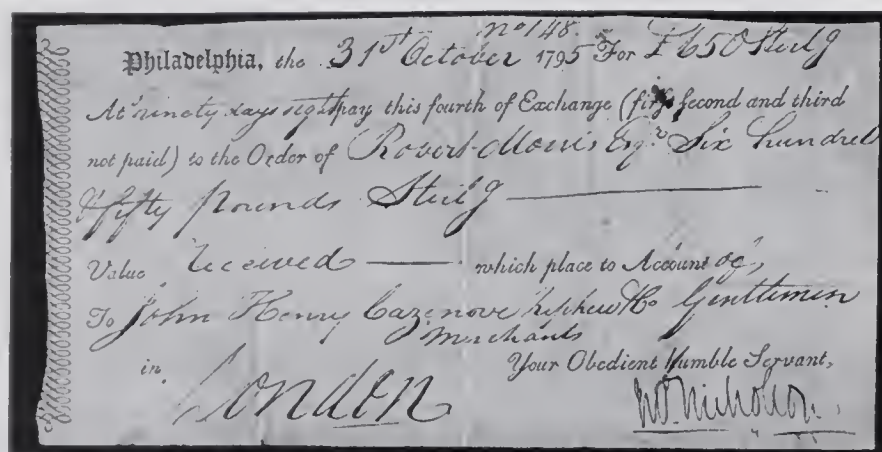 No 148.
Philadelphia, the 31st October 1795 For £650 Sterlg
At ninety days sight pay this fourth of Exchange (first second and third
not paid) to the Order of Robert Morris Esqr Six hundred
& fifty Pounds Sterlg
Value received which place to Account of,
To John Henry Cazenove Nephew & Co Gentlemen
Merchants
in London Your Obedient Humble Servant,
Jno. Nicholson.